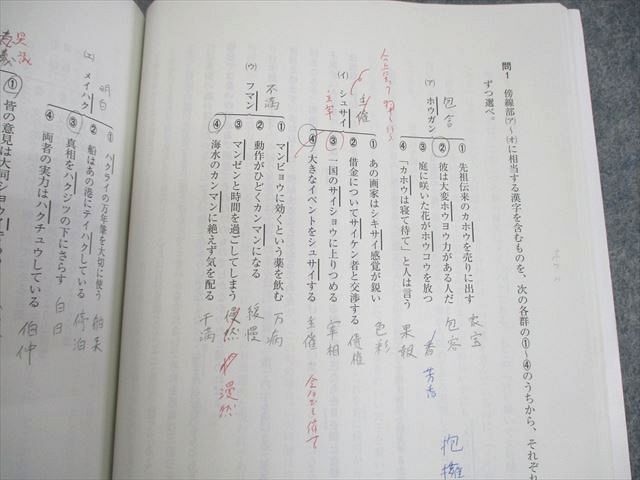 問1 傍線部(ア)～(オ)に相当する漢字を含むものを、次の各群の①～④のうちから、それぞれ
ずつ選べ。
(ア) ホウガン 包含
① 先祖伝来のカホウを売りに出す 家宝
② 彼は大変ホウヨウ力がある人だ 包容 抱擁
③ 庭に咲いた花がホウコウを放つ 芳香
④ 「カホウは寝て待て」と人は言う 果報
(イ) シュサイ 主催 主宰
① あの画家はシキサイ感覚が鋭い 色彩
② 借金についてサイケン者と交渉する 債権
③ 一国のサイショウに上りつめる 宰相
④ 大きなイベントをシュサイする 主催
(ウ) フマン 不満
① マンビョウに効くという薬を飲む 万病
② 動作がひどくカンマンになる 緩慢
③ マンゼンと時間を過ごしてしまう 漫然
④ 海水のカンマンに絶えず気を配る 干満
(エ) メイハク 明白
① ハクライの万年筆を大切に使う 舶来
② 船はあの港にテイハクしている 停泊
③ 真相をハクジツの下にさらす 白日
④ 両者の実力はハクチュウしている 伯仲
① 皆の意見は大同ショウ